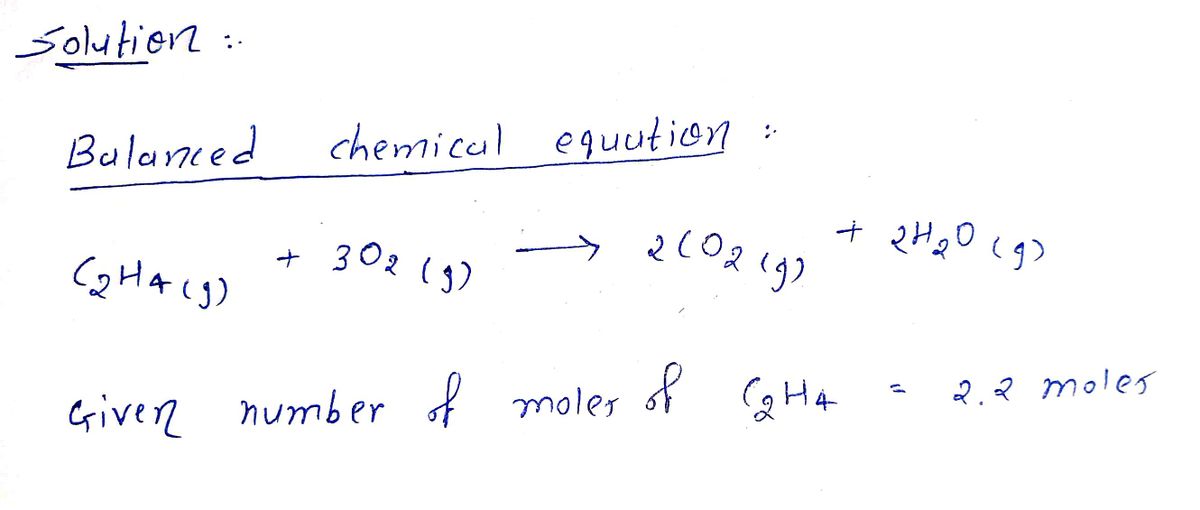 Solution :.
Balanced chemical equation :
C2H4(g) + 3O2(g) → 2CO2(g) + 2H2O(g)
Given number of moles of C2H4 = 2.2 moles